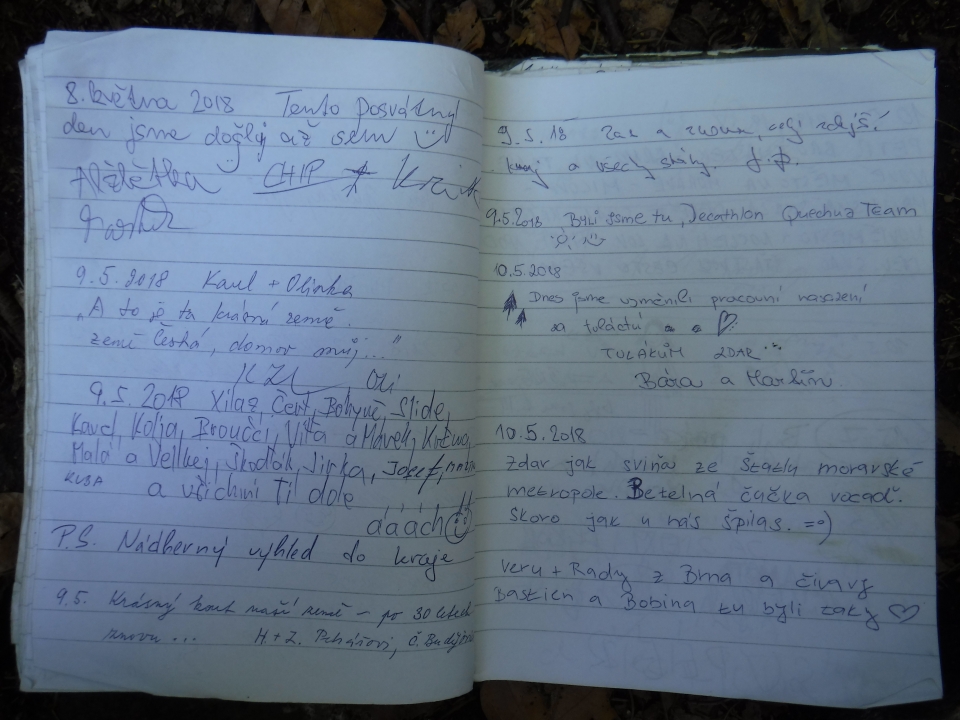 8. května 2018 Tento posvátný
den jsme došly až sem
Alžbětka CHIP
9.5.2018 Karel + Olinka
„A to je ta krásná země.
země česká, domov můj..."
KZL Oli
9.5.2018 Xilaz, Čert, Bohyně, Slide,
Kamel, Kolja, Broučci, Víťa a Mávek,
Malá a Velkej, Škodlák, Jirka, Josef,
KUBA a všichni TI dole
áááách
P.S. Nádherný výhled do kraje
9.5. Krásný kout naší země - po 30 letech
znovu ... H + Z. Č. Budějovice
9.5.18 Zas a znovu, celý zdejší
kraj a všechy skály.
9.5.2018 Byli jsme tu, Decathlon Quechua Team
10.5.2018
Dnes jsme vyměnili pracovní nasazení
za toláctú
TULÁKŮM ZDAR
Bára a Martin
10.5.2018
Zdar jak sviňa ze Štatlu moravské
metropole. Betelná čučka vocaď.
Skoro jak u nás Špilas. =o)
Veru + Rady z Brna a čivavy
Bastien a Bobina tu byli taky